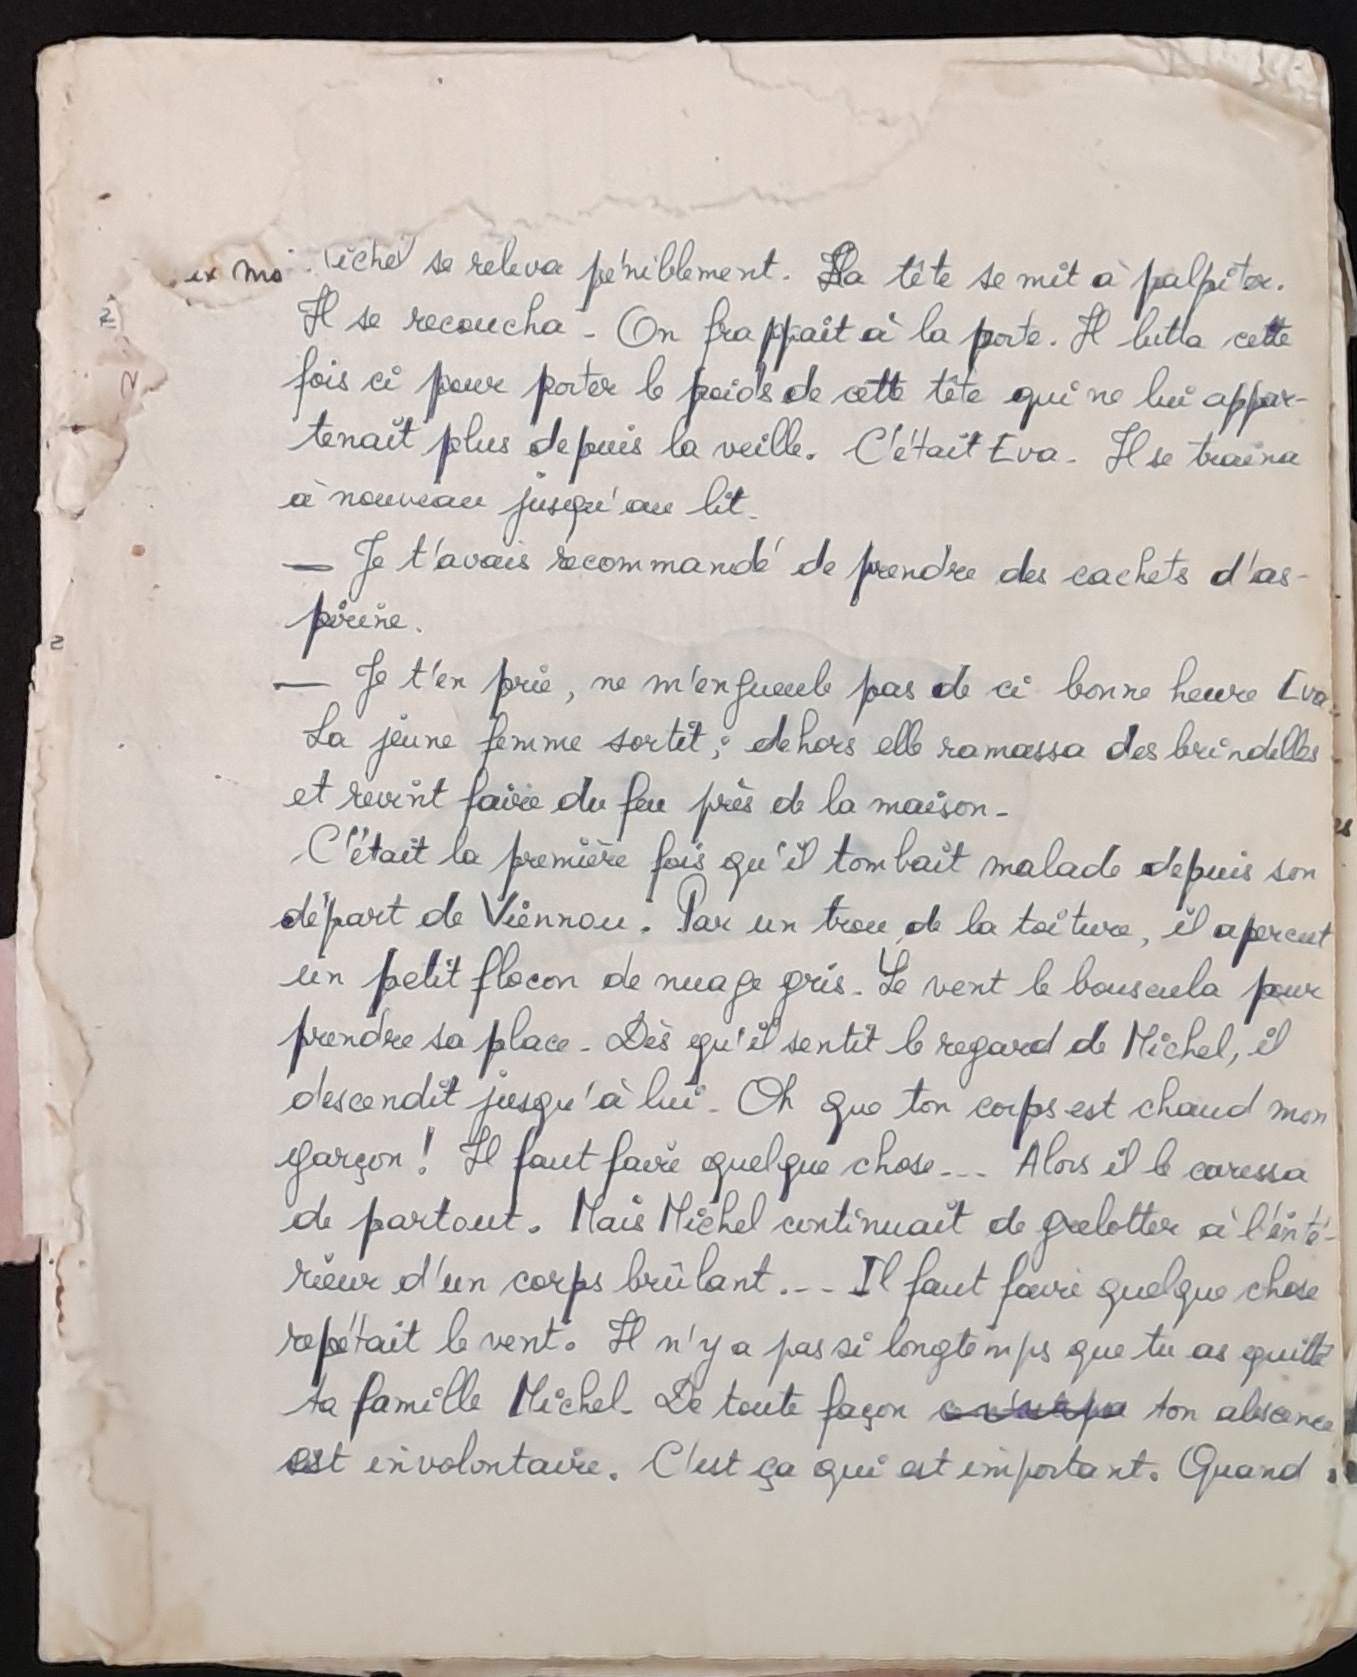 ichel se releva péniblement. La tête se mit à palpiter.
Il se recoucha - On frappait à la porte. Il lutta cette
fois ci pour porter le poids de cette tête qui ne lui appar-
tenait plus depuis la veille. C'était Eva. Il se traina
à nouveau jusqu'au lit.
— Je t'avais recommandé de prendre des cachets d'as-
pirine.
— Je t'en prie, ne m'engueule pas de ci bonne heure Eva.
La jeune femme sortit ; dehors elle ramassa des brindilles
et revint faire du feu près de la maison.
C'était la première fois qu'il tombait malade depuis son
départ de Viennou. Par un trou de la toiture, il apercut
un petit flocon de nuage gris. Le vent le bouscula pour
prendre sa place. Dès qu'il sentit le regard de Michel, il
descendit jusqu'à lui. Oh que ton corps est chaud mon
garçon ! Il faut faire quelque chose... Alors il le caressa
de partout. Mais Michel continuait de grelotter à l'inté-
rieur d'un corps brûlant... Il faut faire quelque chose
repétait le vent. Il n'y a pas si longtemps que tu as quitté
ta famille Michel. De toute façon ton absence
est involontaire. C'est ça qui est important. Quand